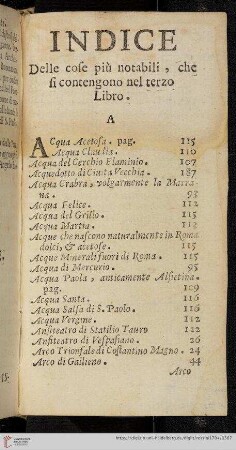 INDICE
Delle cose più notabili, che
si contengono nel terzo
Libro.
A
Acqua Acetosa. pag. 115
Acqua Claudia. 110
Acqua del Cerchio Flaminio. 107
Acquedotto di Civita Vecchia. 187
Acqua Crabra, volgarmente la Marra-
na. 93
Acqua Felice. 112
Acqua del Grillo. 115
Acqua Martia. 112
Acque che nascono naturalmente in Roma
dolci, & acetose. 115
Acque Minerali fuori di Roma. 115
Acqua di Mercurio. 95
Acqua Paola, anticamente Alsietina.
pag. 109
Acqua Santa. 116
Acqua Salsa di S. Paolo. 116
Acqua Vergine. 112
Anfiteatro di Statilio Tauro
Anfiteatro di Vespasiano. 26
Arco Trionfale di Costantino Magno. 24
Arco di Gallieno. 44
Arco